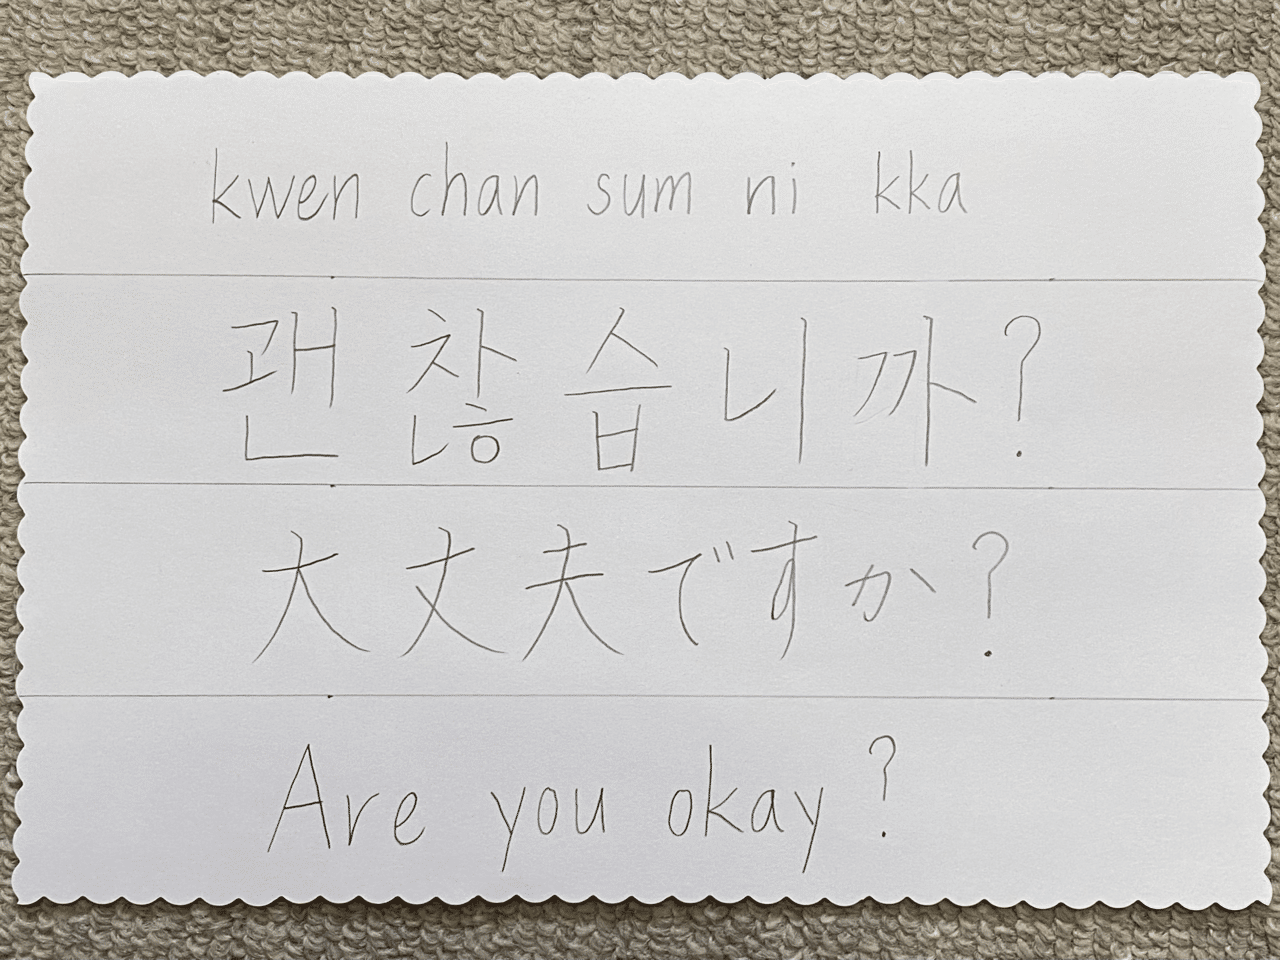 kwen chan sum ni kka
괜찮습니까?
大丈夫ですか?
Are you okay?